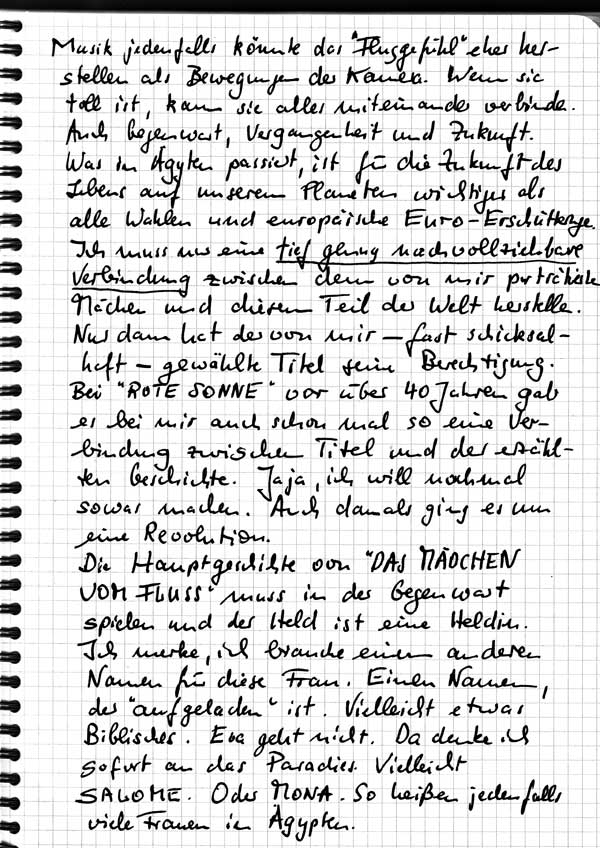 Musik jedenfalls könnte das "Fluggefühl" eher her-
stellen als Bewegungen der Kamera. Wenn sie
toll ist, kann sie alles miteinander verbinde.
Auch Gegenwart, Vergangenheit und Zukunft.
Was in Ägyten passiert, ist für die Zukunft des
Lebens auf unserem Planeten wichtiger als
alle Wahlen und europäische Euro-Erschütterge.
Ich muss nur eine tief genug nachvollziehbare
Verbindung zwischen dem von mir porträtierte
Mädchen und diesem Teil der Welt herstelle.
Nur dann hat der von mir – fast schicksal-
haft – gewählte Titel seine Berechtigung.
Bei "ROTE SONNE" vor über 40 Jahren gab
es bei mir auch schon mal so eine Ver-
bindung zwischen Titel und der erzähl-
ten Geschichte. Jaja, ich will nochmal
sowas machen. Auch damals ging es um
eine Revolution.
Die Hauptgeschichte von "DAS MÄDCHEN
VOM FLUSS" muss in der Gegenwart
spielen und der Held ist eine Heldin.
Ich merke, ich brauche einen anderen
Namen für diese Frau. Einen Namen,
der "aufgeladen" ist. Vielleicht etwas
Biblisches. Eva geht nicht. Da denke ich
sofort an das Paradies. Vielleicht
SALOME. Oder MONA. So heißen jedenfalls
viele Frauen in Ägypten.